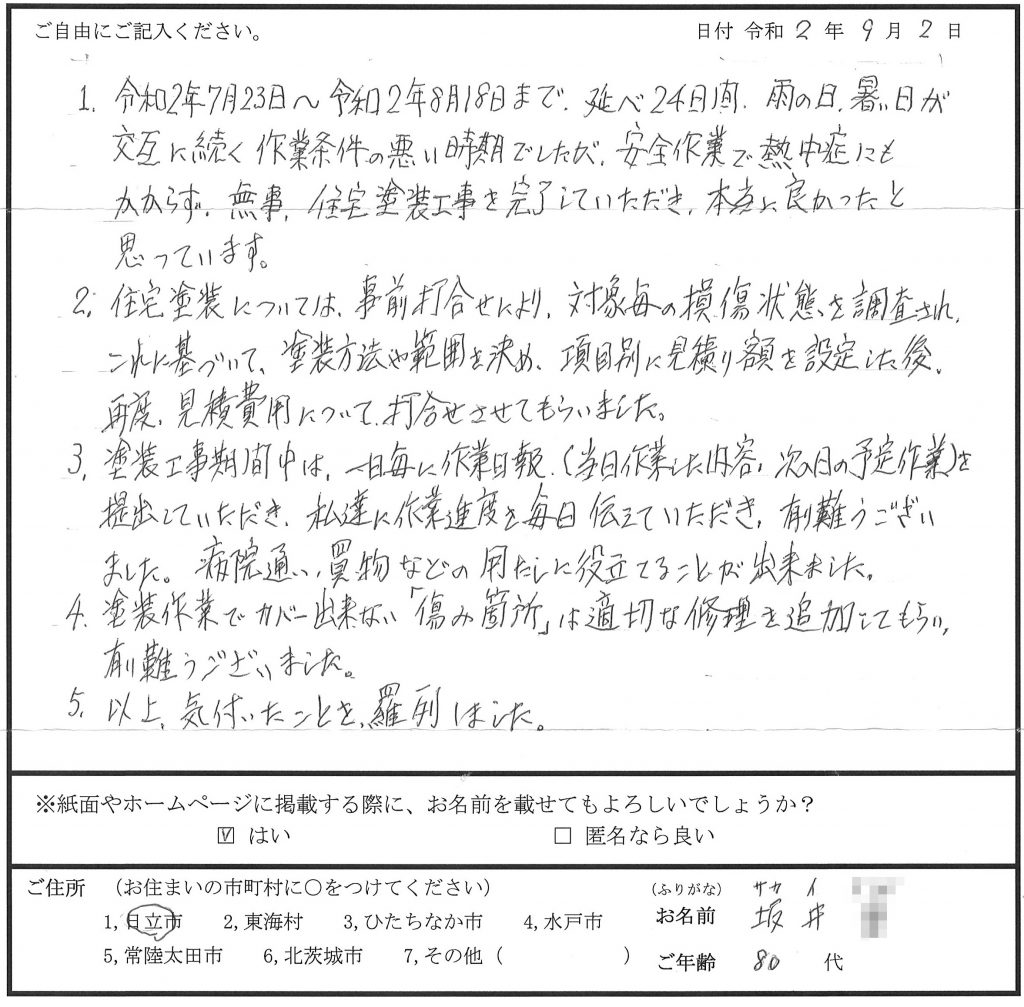 ご自由にご記入ください。 日付 令和 2 年 9 月 2 日
1. 令和2年7月23日～令和2年8月18日まで、延べ24日間、雨の日、暑い日が
交互に続く作業条件の悪い時期でしたが、安全作業で熱中症にも
かからず、無事、住宅塗装工事を完了していただき、本当に良かったと
思っています。
2. 住宅塗装については、事前打合せにより、対象毎の損傷状態を調査され、
これに基づいて、塗装方法や範囲を決め、項目別に見積り額を設定した後、
再度、見積費用について、打合せさせてもらいました。
3. 塗装工事期間中は、一日毎に作業日報、(当日作業した内容、次の日の予定作業)を
提出していただき、私達に作業進度を毎日伝えていただき、有難うござい
ました。病院通い、買物などの用たしに役立てることが出来ました。
4. 塗装作業でカバー出来ない「傷み箇所」は適切な修理を追加してもらい、
有難うございました。
5. 以上、気付いたことを、羅列しました。
※紙面やホームページに掲載する際に、お名前を載せてもよろしいでしょうか？
☑ はい □ 匿名なら良い
ご住所 （お住まいの市町村に○をつけてください） (ふりがな) サカイ
1,日立市 2,東海村 3,ひたちなか市 4,水戸市 お名前 坂井
5,常陸太田市 6,北茨城市 7,その他（ ） ご年齢 80 代